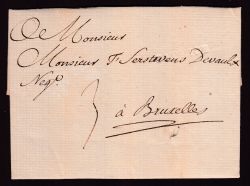 A Monsieur
Monsieur Fr Serstevens Devaulx
Negt.
3
à Bruxelles